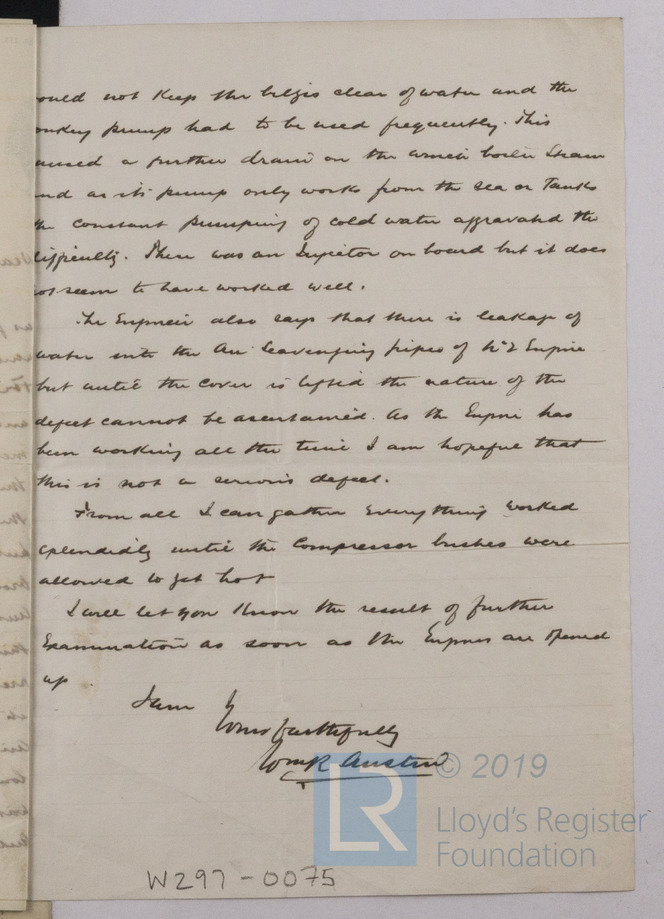 ould not keep the bilges clear of water and the
onkey pump had to be used frequently. This
aused a further drain on the donkey boiler steam
nd as its pump only works from the sea or Tanks
the constant pumping of cold water aggravated the
difficulty. There was an Injector on board but it does
not seem to have worked well.
The Engineer also says that there is leakage of
water into the Air Scavenging pipes of No 2 Engine
but until the cover is lifted the nature of the
defect cannot be ascertained. As the Engine has
been working all the time I am hopeful that
this is not a serious defect.
From all I can gather everything worked
splendidly until the Compressor bushes were
allowed to get hot
I will let you know the result of further
Examination as soon as the Engines are opened
up.
I am
Yours faithfully
Wm R Austin
© 2019
LR
Lloyd's Register
Foundation
W297-0075